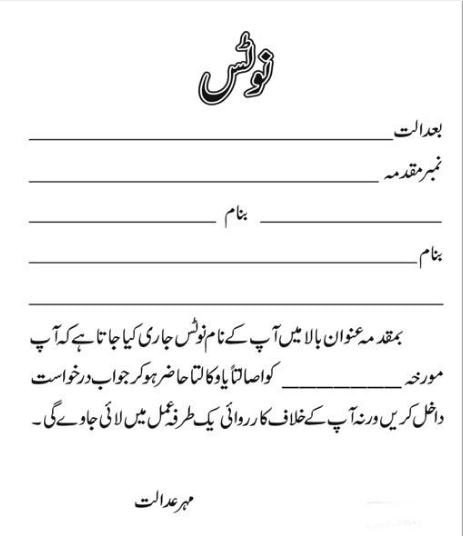 نوٹس
بعدالت ____________________
نمبر مقدمہ ____________________
__________ بنام __________
بنام ____________________
____________________
بمقدمہ عنوان بالا میں آپ کے نام نوٹس جاری کیا جاتا ہے کہ آپ
مورخہ ________ کو اصالتاً یا وکالتا حاضر ہو کر جواب درخواست
داخل کریں ورنہ آپ کے خلاف کارروائی یک طرفہ عمل میں لائی جاوے گی ۔
مہر عدالت